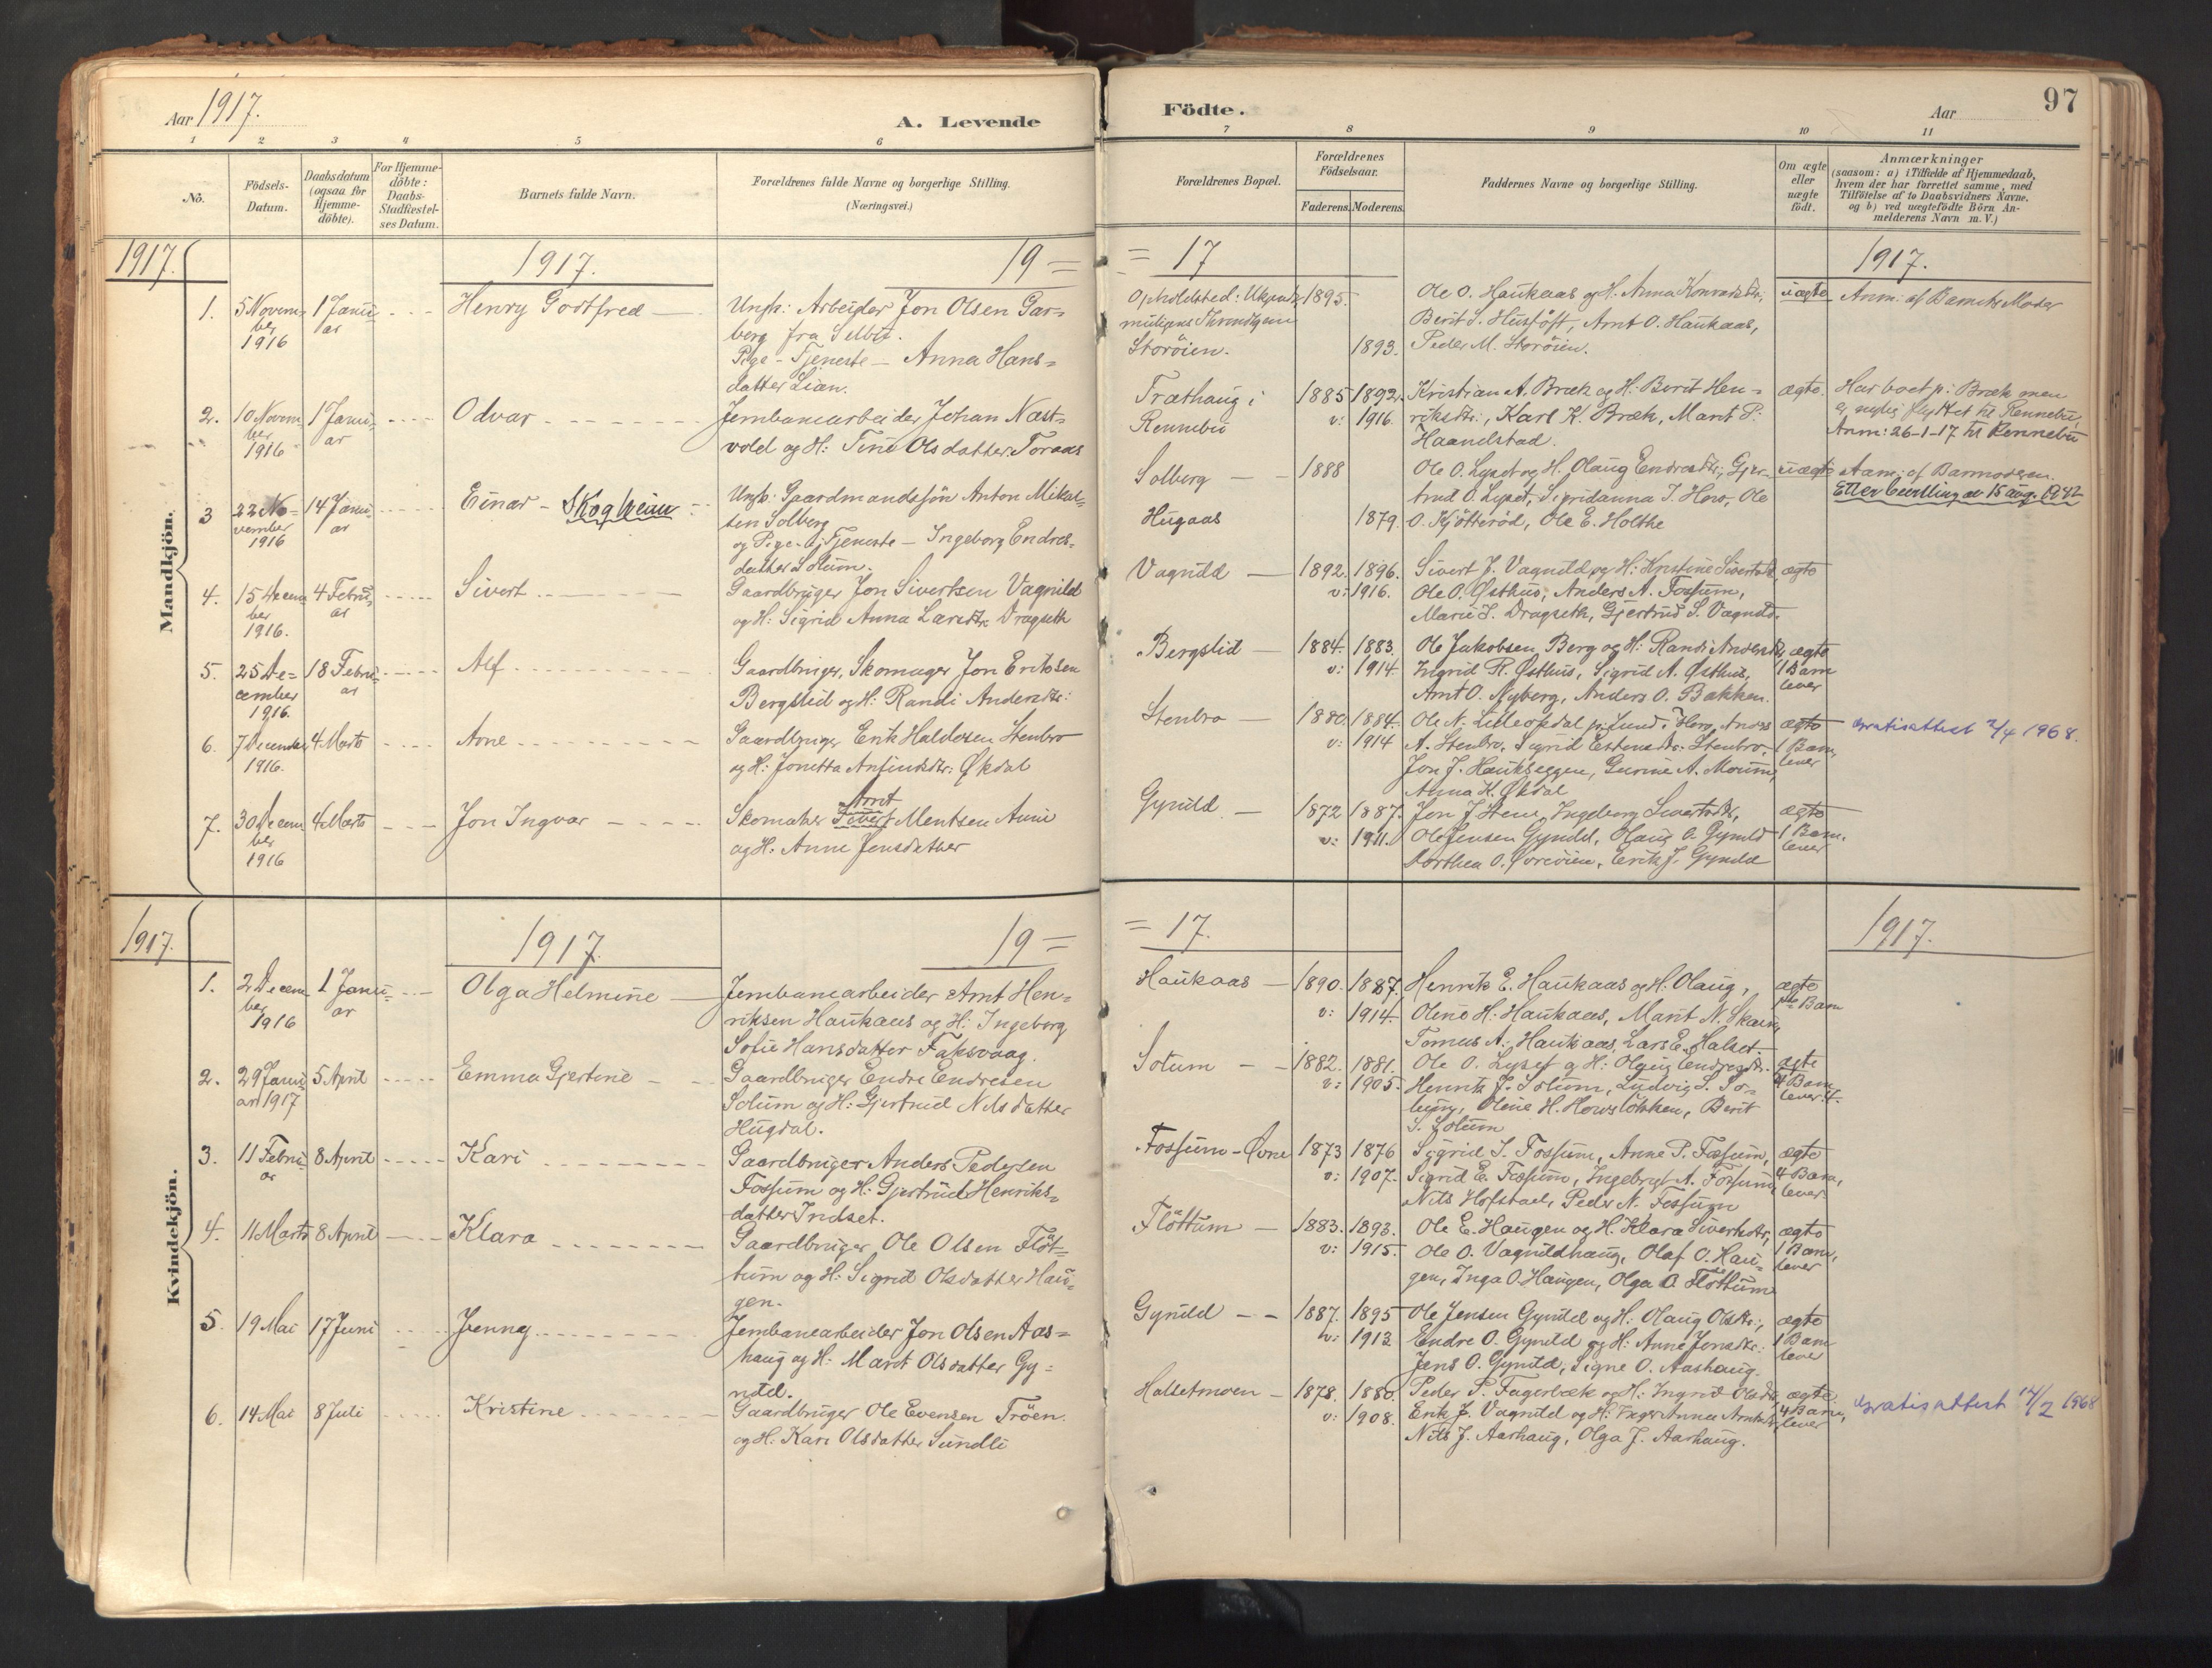 Aar 1917.
A. Levende
Födte.
Aar
97
1 2 3 4 5 6 7 8 9 10 11
No.
Födsels-
Datum.
Daabsdatum
(ogsaa for
Hjemme-
döbte).
For Hjemme-
döbte:
Daabs-
Stadfestel-
ses Datum.
Barnets fulde Navn.
Forældrenes fulde Navne og borgerlige Stilling.
(Næringsvei.)
Forældrenes Bopæl.
Forældrenes
Födselsaar.
Faderens. Moderens.
Faddernes Navne og borgerlige Stilling.
Om ægte
eller
uægte
födt.
Anmærkninger
(saasom: a) i Tilfælde af Hjemmedaab,
hvem der har forrettet samme, med
Tilföielse af to Daabsvidners Navne,
og b) ved uægtefödte Börn An-
melderens Navn m. V.)
Mandkjön.
1917. 1917. 19 =
= 17 1917.
1. 5 Novem-
ber
1916
1 Janu-
ar
Henry Gottfred
Ungk: Arbeider Jon Olsen Gar-
berg fra Selbu.
Pige - Tjeneste - Anna Hans-
datter Lian.
Storöien.
1895.
1893.
Ole O. Haukaas og H. Anna Konradsdtr;
Berit S. Husföft, Arnt O. Haukaas,
Peder M. Storöien.
uægte
Anm: af Barnets Moder
2. 10 Novem-
ber
1916
1 Janu-
ar
Odvar
Jernbanearbeider Johan Næst-
vold og H: Tine Olsdatter Toraas
Træthaug i
Rennebu
1885 1892.
v: 1916.
Kristian A. Bræk og H: Berit Hen-
riksdtr:, Karl K. Bræk, Marit P.
Haandstad.
ægte.
Har boet p: Bræk men
er nylig flyttet til Rennebu,
Anm: 26-1-17 til Rennebu
3 22 No-
vember
1916
14 Janu-
ar
Einar - Skogheim
Ungk: Gaardmandssön Anton Mikal-
sen Solberg
og Pige - Tjeneste - Ingeborg Endres-
datter Solum.
Solberg
Hugaas
1888
1879.
Ole O. Lyset og H. Olaug Endresdtr; Gjer-
trud O. Lyset, Sigridanna J. Hov, Ole
O. Kjötteröd, Ole E. Holthe
uægte
Anm: af Barnmoderen.
Etter bevilling av 15 aug. 1942
4. 15 Decem-
ber
1916.
4 Febru-
ar
Sivert
Gaardbruger Jon Sivertsen Vagnild
og H: Sigrid Anna Larsdtr. Dragseth
Vagnild
1892. 1896.
v: 1916.
Sivert J. Vagnild og H: Kristine Sivertsdtr,
Ole O. Østhus, Anders A. Fossum,
Marie L. Dragseth, Gjertrud S. Vagnild.
ægte
5. 25 De-
cember
1916.
18 Febru-
ar
Alf
Gaardbruger, Skomager Jon Eriksen
Bergslid og H: Randi Andersdtr:
Bergslid
1884. 1883.
v: 1914.
Ole Jakobsen Berg og H: Randi Andersdtr,
Ingrid R. Østhus, Sigrid A. Østhus,
Arnt O. Nyberg, Anders O. Bakken.
ægte
1 Barn
lever
6. 7 December
1916.
4 Marts
Arne
Gaardbruger Erik Haldosen Stenbro
og H: Jonetta Anfindsdtr: Økdal
Stenbro
1880. 1884.
v: 1914
Ole N. Lilleopdal p: Lund i Hov, Anders
A. Stenbro, Sigrid Estensdtr: Stenbro,
Jon J. Haukseggen, Gurine A. Moum,
Anna H. Økdal
ægte
1 Barn,
lever
Gratisattest 2/4 1968.
7. 30 Decem-
ber
1916
4 Marts
Jon Ingvar
Arnt
Skomaker Sivert Mentsen Aune
og H. Anne Jensdatter
Gynild
1872 1887.
v: 1911.
Jon J. Stene, Ingeborg Sivertsdtr,
Ole Jensen Gynild, Olaug O. Gynild
Dorthea O. Öreöien, Erik J. Gynild
ægte
1 Barn.
lever
Kvindekjön.
1917. 1917. 19 =
= 17. 1917.
1. 2 Decem-
ber
1916
1 Janu-
ar
Olga Helmine
Jernbanearbeider Arnt Hen-
riksen Haukaas og H: Ingeborg
Sofie Hansdatter Faksvaag.
Haukaas
1890. 1887.
v: 1914.
Henrik E. Haukaas og H. Olaug,
Oline H. Haukaas, Marit N. Skaug,
Tomas A. Haukaas, Lars E. Halset.
ægte
1ste Barn
2. 29 Janu-
ar 1917
5 April
Emma Gjertine
Gaardbruger Endre Endresen
Solum og H: Gjertrud Nilsdatter
Hugdal.
Solum
1882. 1881.
v: 1905.
Ole O. Lyset og H: Olaug Endresdtr.
Henrik J. Solum, Ludvig S. So-
lum, Oline H. Hovslökken, Berit
S. Solum
ægte
4 Barn
lever 4.
3. 11 Febru-
ar
8 April
Kari
Gaardbruger Anders Pedersen
Fossum og H: Gjertrud Henriks-
datter Indset.
Fossum-Övne
1873 1876
v: 1907.
Sigrid S. Fossum, Anne P. Fossum,
Sigrid E. Fossum, Ingebrigt A. Fossum,
Nils Hofstad, Peder N. Fossum
ægte
4 Barn,
lever
4. 11 Marts
8 April
Klara
Gaardbruger Ole Olsen Flöt-
tum og H: Sigrid Olsdatter Hau-
gen.
Flöttum
1883. 1893.
v: 1915.
Ole E. Haugen og H. Klara Sivertsdtr,
Ole O. Vagnildhaug, Olaf O. Hau-
gen, Inga O. Haugen, Olga O. Flöttum
ægte
1 Barn,
lever
5. 19 Mai
17 Juni
Jenny
Jernbanearbeider Jon Olsen Aas-
haug og H: Marit Olsdatter Gy-
nild.
Gynild
1887. 1895
v: 1913
Ole Jensen Gynild og H: Olaug Olsdtr;
Endre O. Gynild og H: Anne Jonsdtr:
Jens O. Gynild, Signe O. Aashaug.
ægte
1 Barn
lever
6. 14 Mai
8 Juli
Kristine
Gaardbruger Ole Evensen Tröen.
og H: Kari Olsdatter Sundli
Halsetmoen
1878. 1880.
v: 1908.
Peder P. Fagerbæk og H: Ingrid Olsdtr,
Erik J. Vagnild og H: Inger Anna Arntsdtr,
Nils J. Aashaug, Olga J. Aashaug.
ægte
4 Barn,
lever
Gratisattest 14/2 1968